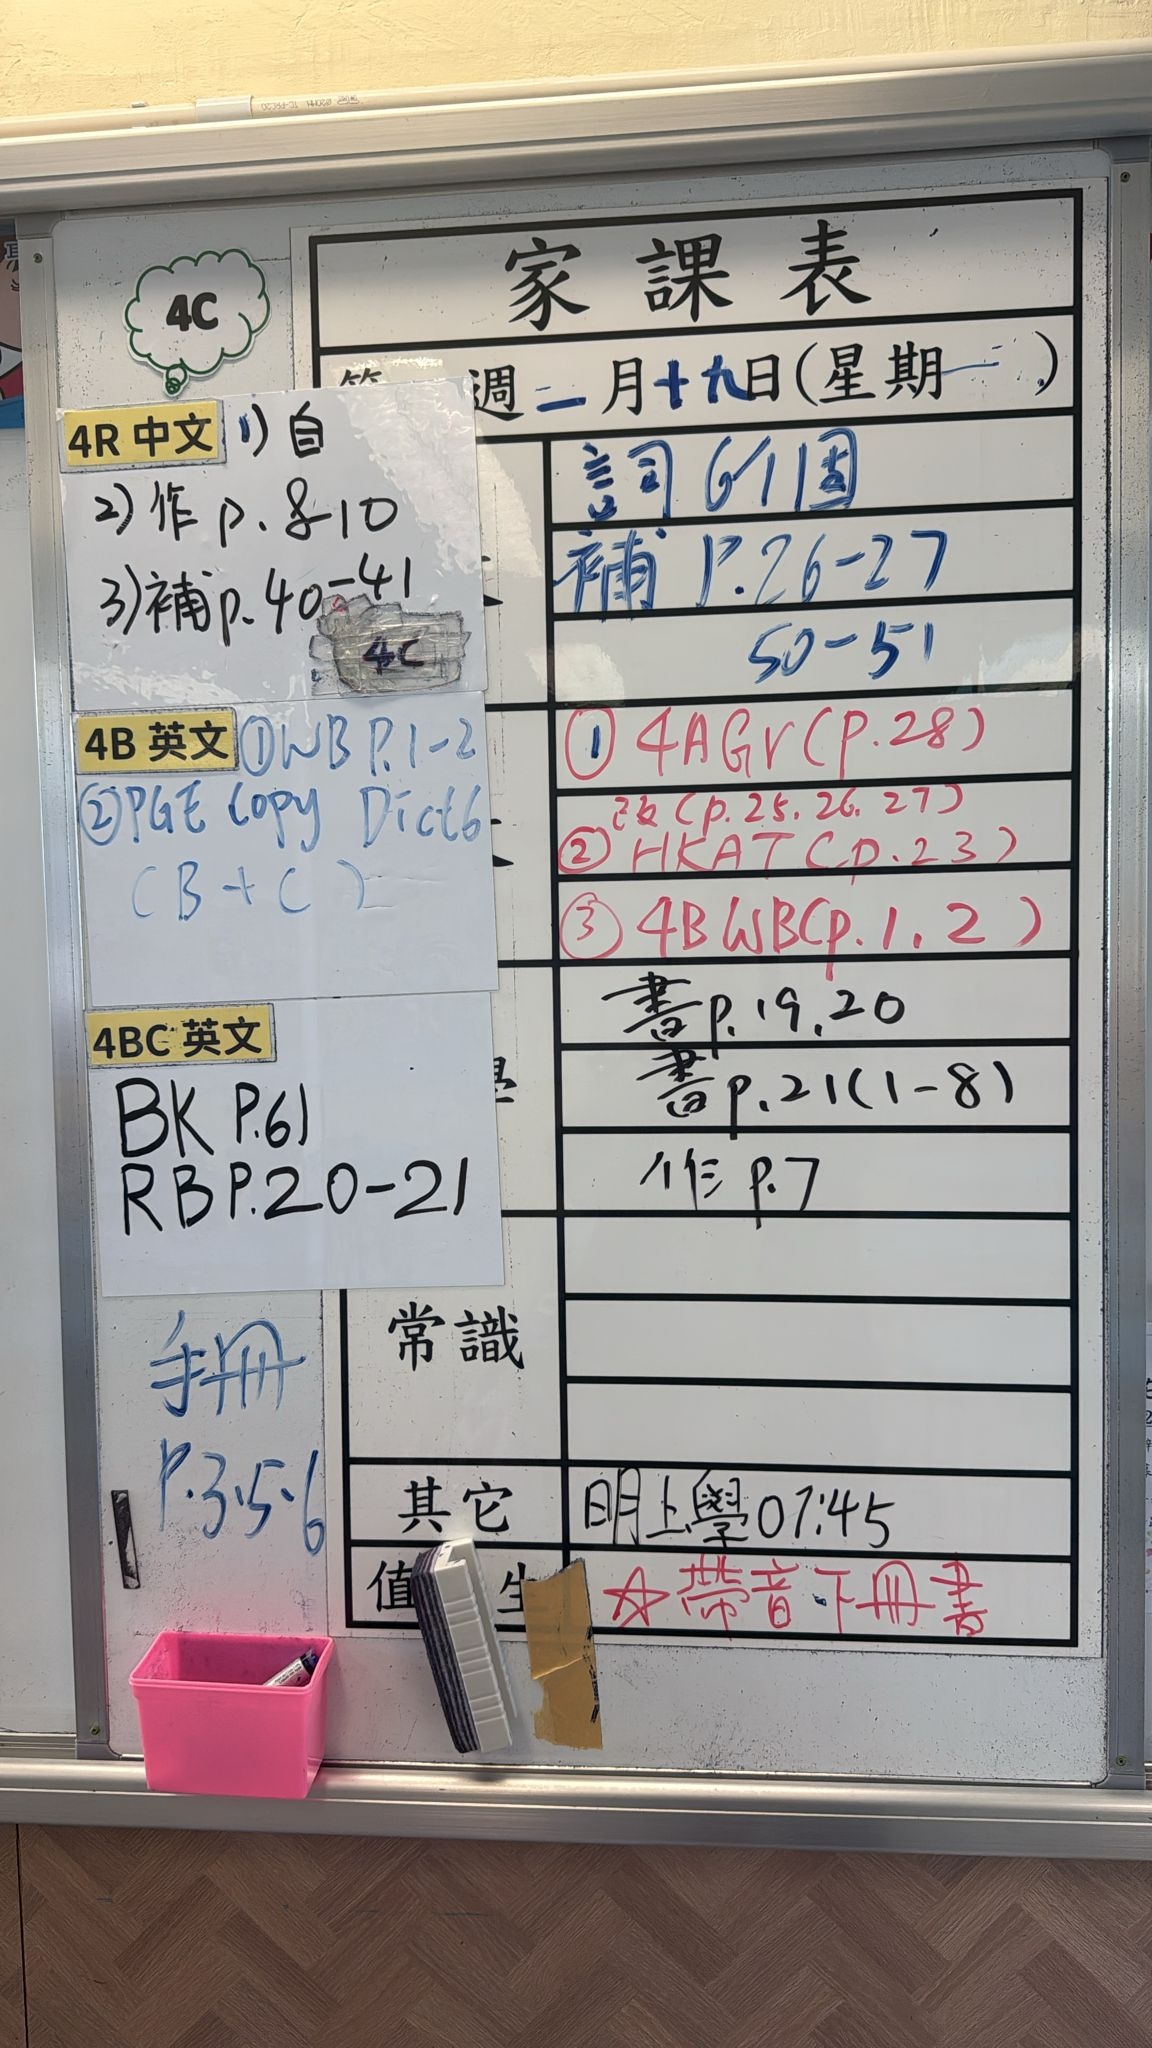 家課表
4C
週二月十九日(星期
4R 中文 1) 自
2) 作 p. 8-10
3) 補 p. 40-41
4C
詞 6/11個
補 P.26-27
50-51
4B 英文 ① WB P.1-2
② PGE Copy Dict6
(B+C)
① 4AGr(p.28)
改(p.25.26.27)
② HKAT(p.23)
③ 4B WB(p.1.2)
4BC 英文
BK P.61
RB P.20-21
書 p.19.20
書 p.21(1-8)
作 p.7
手冊
P.3.5.6
常識
其它 明上學07:45
值 生 ☆帶音下冊書